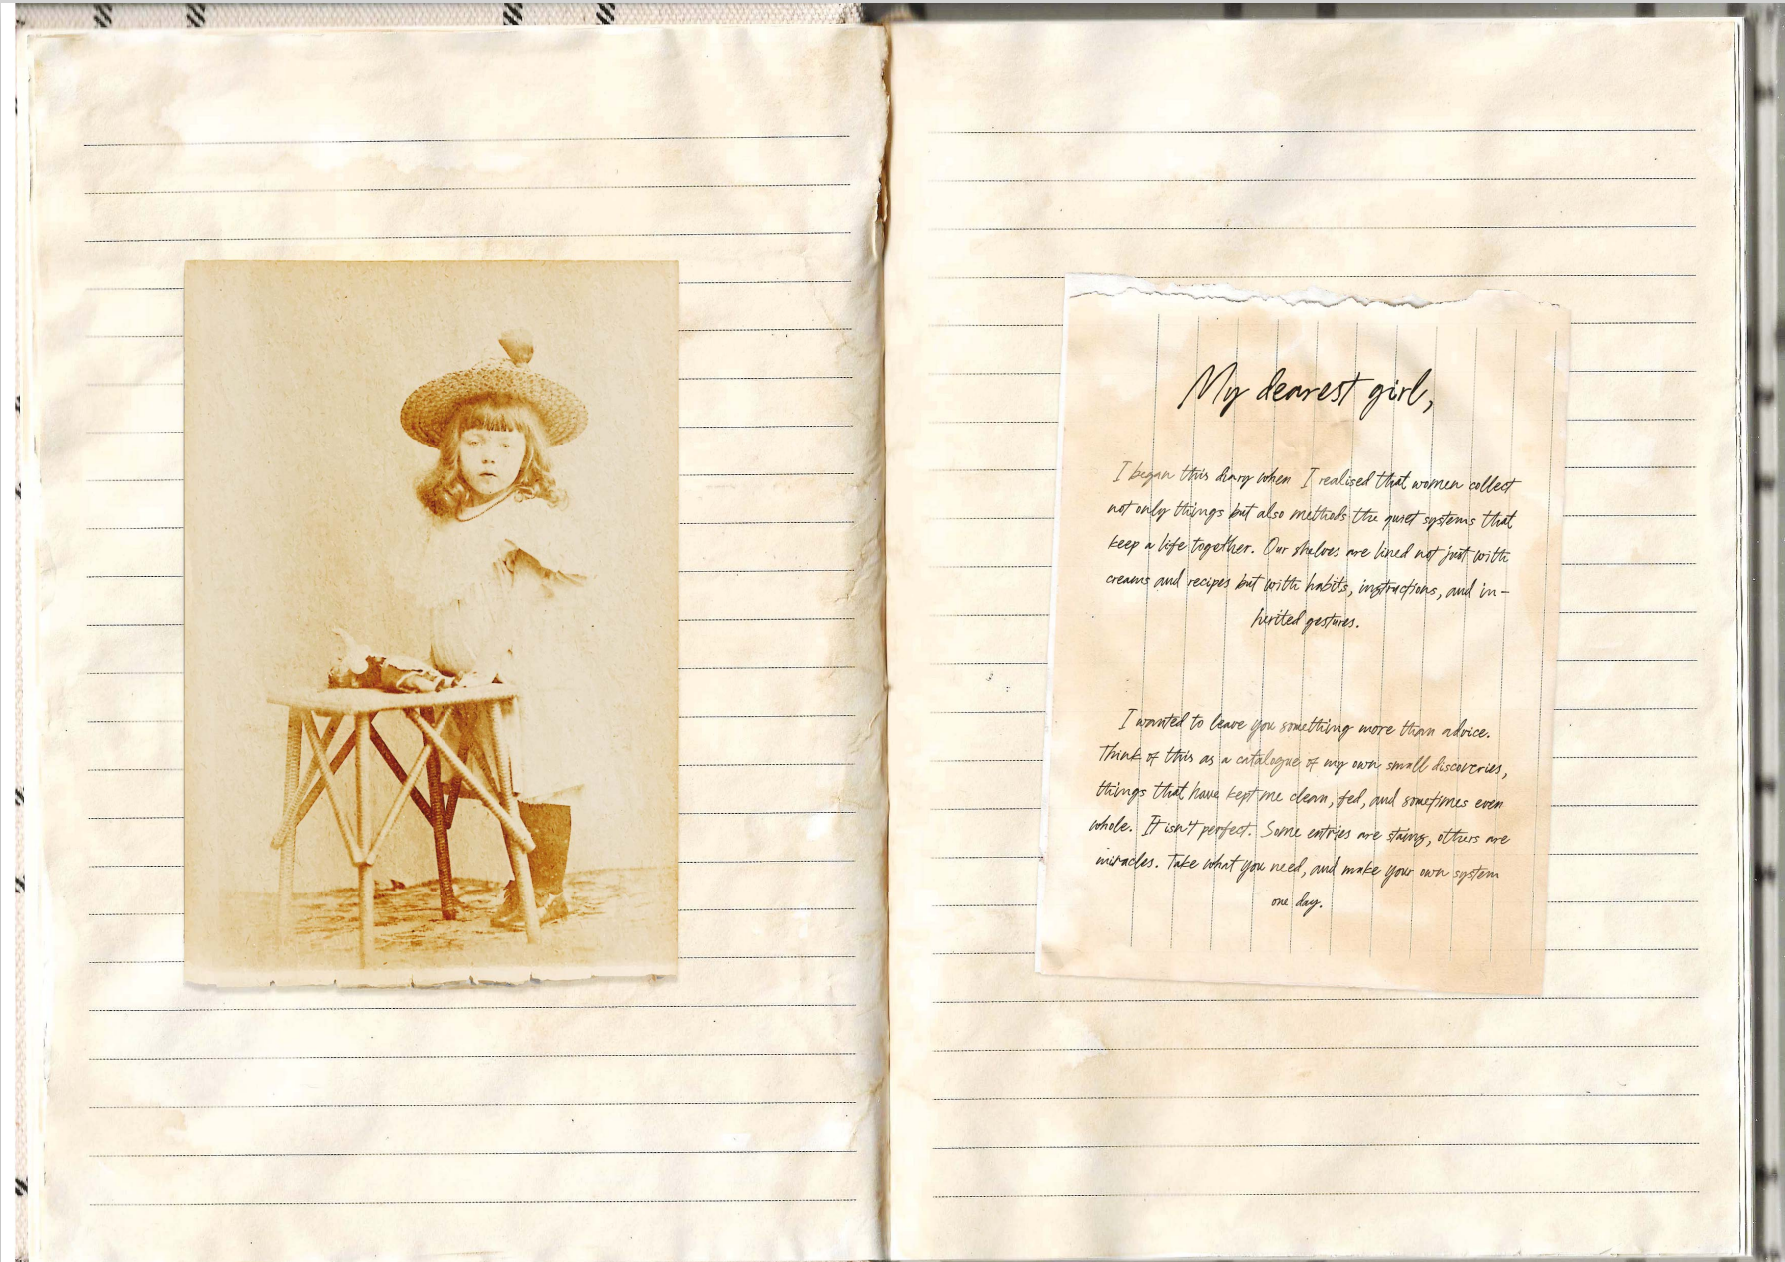 My dearest girl,
I began this diary when I realised that women collect
not only things but also methods the quiet systems that
keep a life together. Our shelves are lined not just with
creams and recipes but with habits, instructions, and in-
herited gestures.
I wanted to leave you something more than advice.
Think of this as a catalogue of my own small discoveries,
things that have kept me clean, fed, and sometimes even
whole. It isn't perfect. Some entries are stains, others are
miracles. Take what you need, and make your own system
one day.